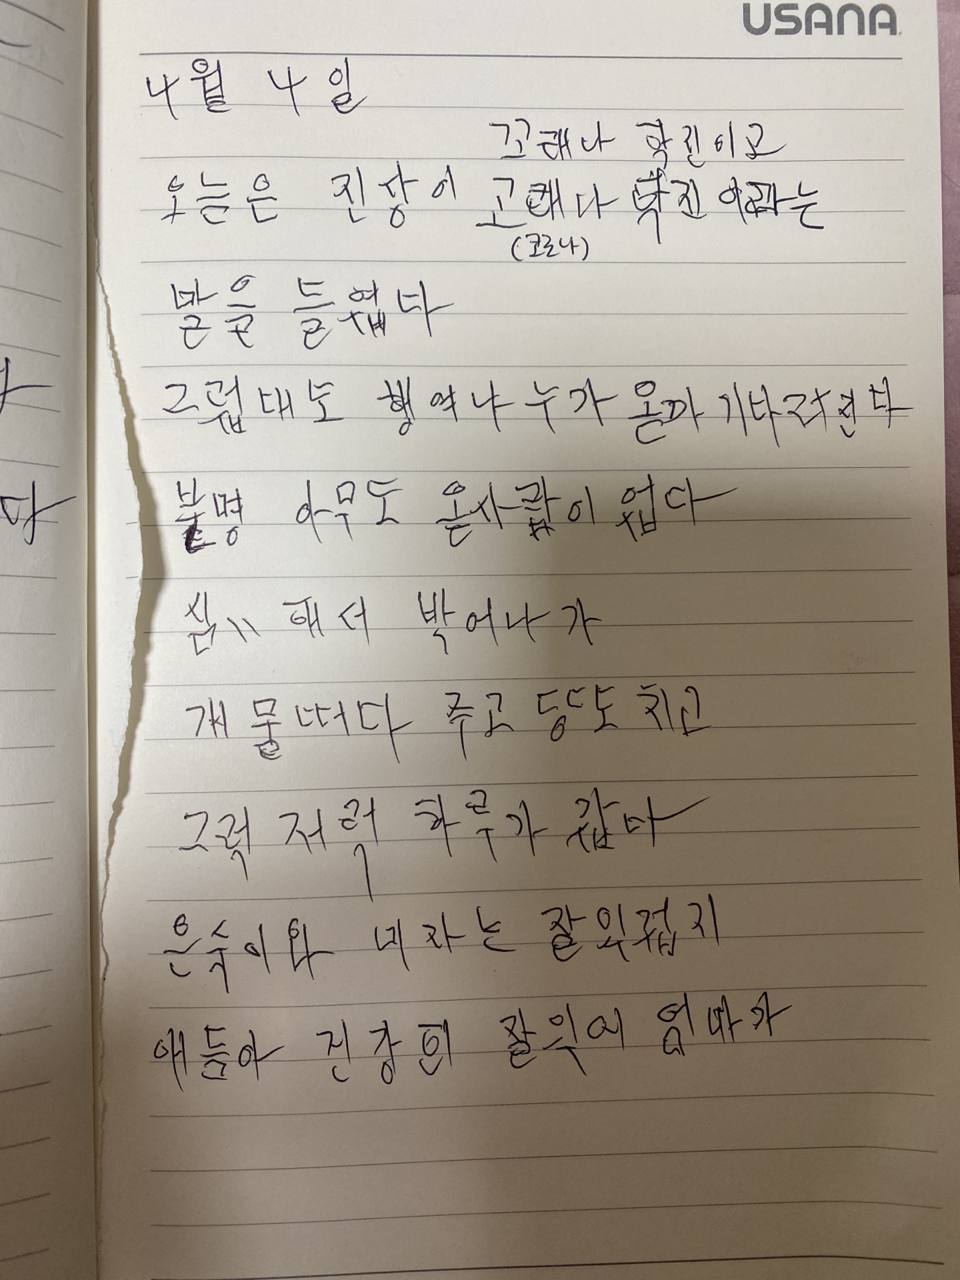 USANA
4월 4일
꼬래나 확진이고
오늘은 진장이 고래다 확진 이라는
(코로나)
말을 들웠다
그럽대도 행여나 누가 올까 기다려진다
불명 아무도 온사람이 없다
심〃해서 박어나가
개 물떠다 주고 등도 치고
그럭 저럭 하루가 갔다
은수이와 내자는 잘잇겠지
애들아 진강히 잘잇어 엄마가
다